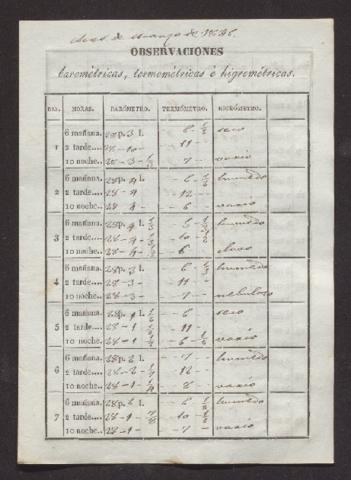 Mes de Marzo de
OBSERVACIONES
barométricas, termométricas é higrométricas.
DIA. HORAS. BARÓMETRO. TERMÓMETRO. HIGRÓMETRO.
6 mañana. 28 p. 3 l. - 6 1/2 seco
1 2 tarde.... - 11 -
10 noche.. 28 - 3 - 7 - vario
6 mañana. 28 p. 4 l. - 6 1/2 humedo
2 2 tarde.... 28 - 4 - 12 -
10 noche. 28 4 - - 6 vario
6 mañana. 28 p. 4 l. humedo
3 2 tarde.... 28 - 4 - 10 -
10 noche. 28 - 4 - 6
6 mañana. 28 p. 3 l. - 6 humedo
4 2 tarde.... 28 - 3 - - 11 -
10 noche. 28 - 3 - - 7 - nebuloso
6 mañana. 28 p. 4 l. - 6 seco
5 2 tarde.... 28 - 1 - 11 -
10 noche. 28 - 1 - 6 - vario
6 mañana. 28 p. 2 l. - 7 - humedo
6 2 tarde.... 28 - 2 - 12 -
10 noche. 28 - 1 - 8 - vario
6 mañana. 28 p. l. - 6 humedo
7 2 tarde.... 28 - 1 - 10 -
10 noche.. 28 - 1 - - 7 - vario